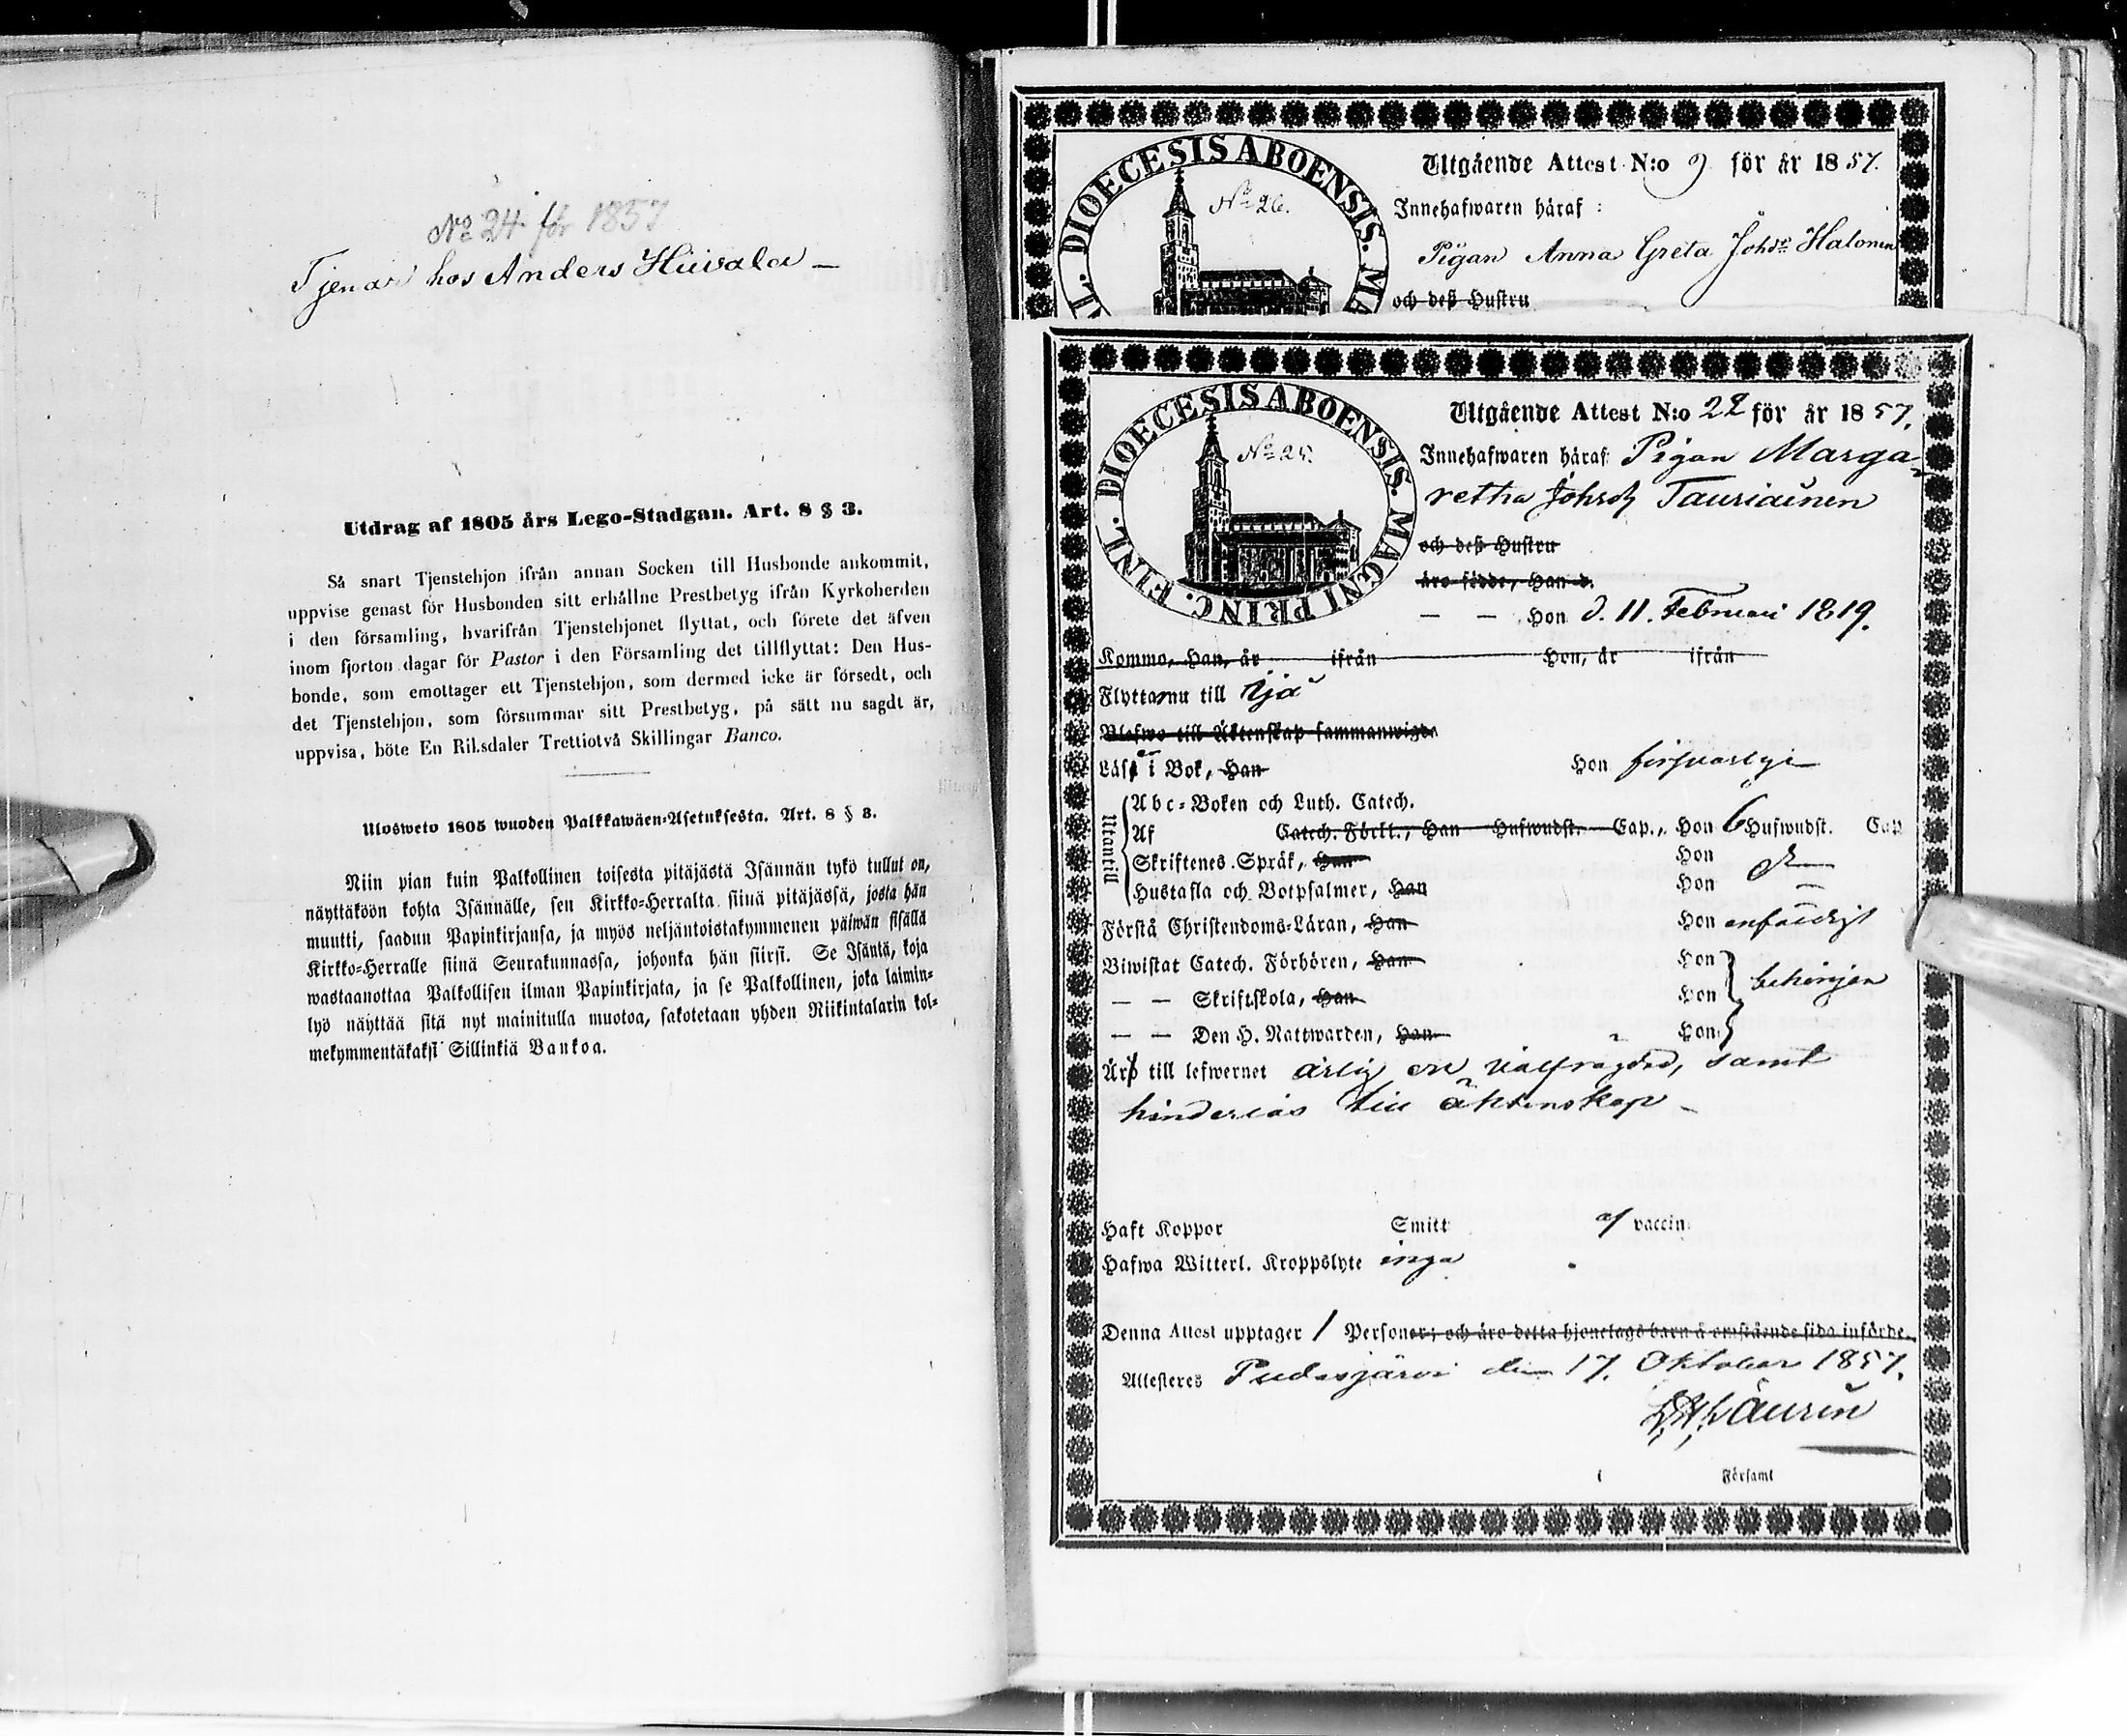 No 24 för 1857
Tjenar hos Anders Hiivala –
Utdrag af 1805 års Lego-Stadgan. Art. 8 § 3.
Så snart Tjenstehjon ifrån annan Socken till Husbonde ankommit,
uppvise genast för Husbonden sitt erhållne Prestbetyg ifrån Kyrkoherden
i den församling, hvarifrån Tjenstehjonet flyttat, och förete det äfven
inom fjorton dagar för Pastor i den Församling det tillflyttat: Den Hus-
bonde, som emottager ett Tjenstehjon, som dermed icke är försedt, och
det Tjenstehjon, som försummar sitt Prestbetyg, på sätt nu sagdt är,
uppvisa, böte En Riksdaler Trettiotvå Skillingar Banco.
Ulosweto 1805 wuoden Palkkawäen-Asetuksesta. Art. 8 § 3.
Niin pian kuin Palkollinen toisesta pitäjästä Isännän tykö tullut on,
näyttäköön kohta Isännälle, sen Kirkko-Herralta siinä pitäjässä, josta hän
muutti, saadun Papinkirjansa, ja myös neljäntoistakymmenen päiwän sisällä
Kirkko-Herralle siinä Seurakunnassa, johonka hän siirsi. Se Isäntä, koja
wastaanottaa Palkollisen ilman Papinkirjata, ja se Palkollinen, joka laimin-
lyö näyttää sitä nyt mainitulla muotoa, sakotetaan yhden Riikintalarin kol-
mekymmentäkaksi Sillinkiä Bankoa.
DIOECESIS ABOENSIS. MA
No 26.
Utgående Attest N:o 9 för år 1857.
Innehafwaren häraf:
Pigan Anna Greta Johsdr Halonen
och deß Hustru
DIOECESIS ABOENSIS. MAGNI PRINC. FINL.
No 25.
Utgående Attest N:o 22 för år 1857.
Innehafwaren häraf: Pigan Marga-
retha Johsdr Tauriainen
och deß Hustru
äro födde, Han d.
— — Hon d. 11. Februari 1819.
Kommo, Han, år ifrån Hon, år ifrån
Flyttar nu till Ijå
Blefwo till Äktenskap sammanwigde
Läser i Bok, Han Hon försvarlge
Utantill
Abc-Boken och Luth. Catech.
Af Catech. Förkl., Han Hufwudst. Cap., Hon 6 Hufwudst. Cap
Skriftenes Språk, Han Hon
Hustafla och Botpsalmer, Han Hon —
Förstå Christendoms-Läran, Han Hon enfaldigt
Biwistat Catech. Förhören, Han Hon
— — Skriftskola, Han Hon behörigen
— — Den H. Nattwarden, Han Hon
Är till lefwernet ärlig och välfrägdad, samt
hinderlös till äktenskap –
Haft Koppor Smitt af vaccin.
Hafwa Witterl. Kroppslyte inga
Denna Attest upptager 1 Personer; och äro detta hjonelags barn å omstående sida införde.
Attesteres Pudasjärvi den 17. Oktober 1857.
Laurin
i Församl